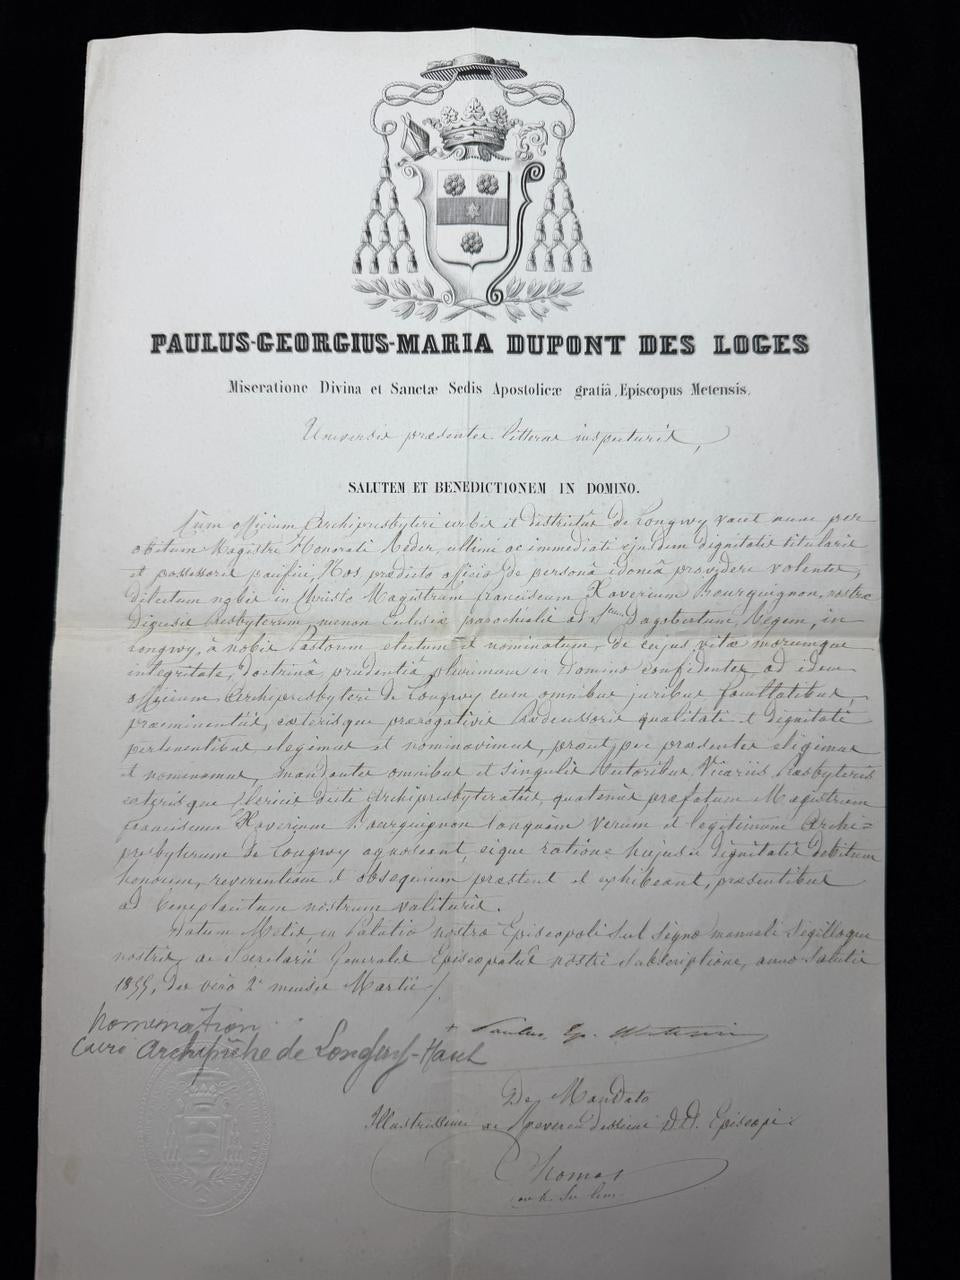 PAULUS-GEORGIUS-MARIA DUPONT DES LOGES
Miseratione Divina et Sanctæ Sedis Apostolicæ gratiâ, Episcopus Metensis.
Universis præsentes litteras inspecturis,
SALUTEM ET BENEDICTIONEM IN DOMINO.
Cum officium Archipresbyteri urbis et districtûs de Longwy vacet nunc per
obitum Magistri Honorati Neder, ultimi ac immediati ejusdem dignitatis titularis
et possessoris pacifici, Nos prædicto officio de personâ idoneâ providere volentes,
dilectum nobis in Christo Magistrum franciscum Xaverium Bourguignon, nostræ
Diœcesis Presbyterum, necnon Ecclesiæ parochialis ad Stum Dagobertum, Regem, in
Longwy, à nobis Pastorem electum et nominatum, de cujus vitæ morumque
integritate, doctrinâ prudentiâ plurimum in Domino confidentes, ad idem
officium Archipresbyteri de Longwy cum omnibus juribus facultatibus,
præeminentiis, cæterisque prærogativis prædecessoris qualitati et dignitati
pertinentibus elegimus et nominavimus, prout per præsentes eligimus
et nominamus, mandantes omnibus et singulis Rectoribus, Vicariis Presbyteris
cæterisque Clericis dicti Archipresbyteratûs, quatenùs præfatum Magistrum
franciscum Xaverium Bourguignon tanquàm verum et legitimum Archi=
presbyterum de Longwy agnoscant, eique ratione hujusce dignitatis debitum
honorem, reverentiam et obsequium præstent et exhibeant, præsentibus
ad beneplacitum nostrum valituris.
Datum Metis, in Palatio nostro Episcopali sub signo manuali sigilloque
nostris, ac Secretarii Generalis Episcopatûs nostri subscriptione, anno Salutis
1855, die verò 2â mensis Martii
+ Paulus, Ep. Metensis
Nomination
Curé Archiprêtre de Longwy-Haut
De Mandato
Illustrissimi ac Reverendissimi D.D. Episcopi
Thomas